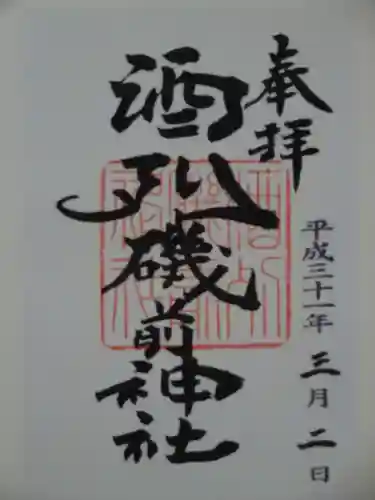 奉拝
酒列磯前神社
平成三十一年三月二日